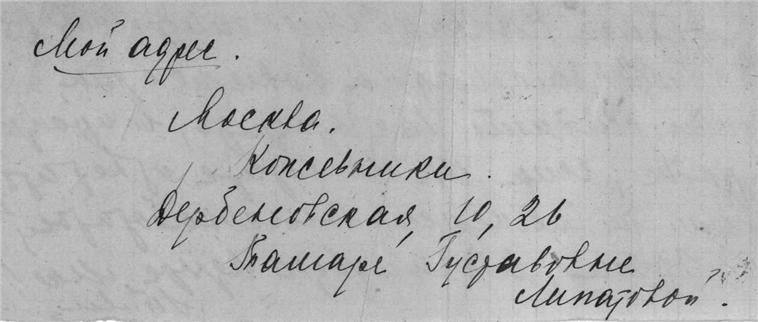 Мой адрес.
Москва.
Кожевники.
Дербеновская, 10, 26
Тамаре Густавовне
Липатовой.